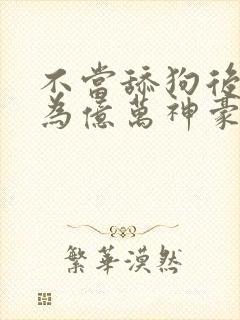 不當舔狗後
為億萬神豪
繁華漠然